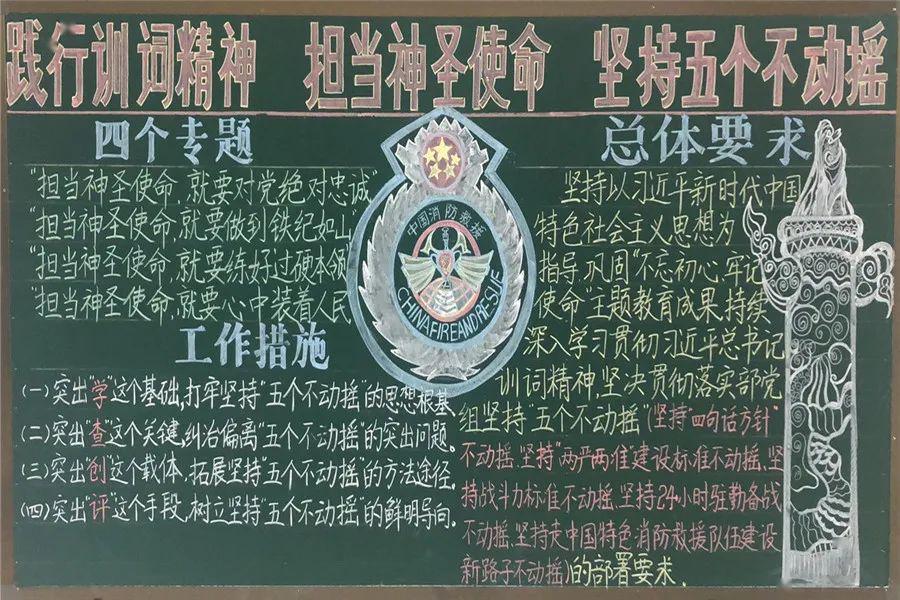 践行训词精神 担当神圣使命 坚持五个不动摇
四个专题
"担当神圣使命,就要对党绝对忠诚"
"担当神圣使命,就要做到铁纪如山
"担当神圣使命,就要练好过硬本领
"担当神圣使命,就要心中装着人民
工作措施
(一)突出"学"这个基础,打牢坚持"五个不动摇"的思想根基
(二)突出"查"这个关键,纠治偏离"五个不动摇"的突出问题。
(三)突出"创"这个载体,拓展坚持"五个不动摇"的方法途径。
(四)突出"评"这个手段,树立坚持"五个不动摇"的鲜明导向。
中国消防救援
CHINA FIRE AND RESCUE
总体要求
坚持以习近平新时代中国
特色社会主义思想为
指导,巩固"不忘初心、牢记
使命"主题教育成果,持续
深入学习贯彻习近平总书记
训词精神,坚决贯彻落实部党
组坚持"五个不动摇"(坚持"四句话方针"
不动摇、坚持"两严两准"建设标准不动摇、坚
持战斗力标准不动摇、坚持24小时驻勤备战
不动摇、坚持走中国特色消防救援队伍建设
新路子不动摇)的部署要求。